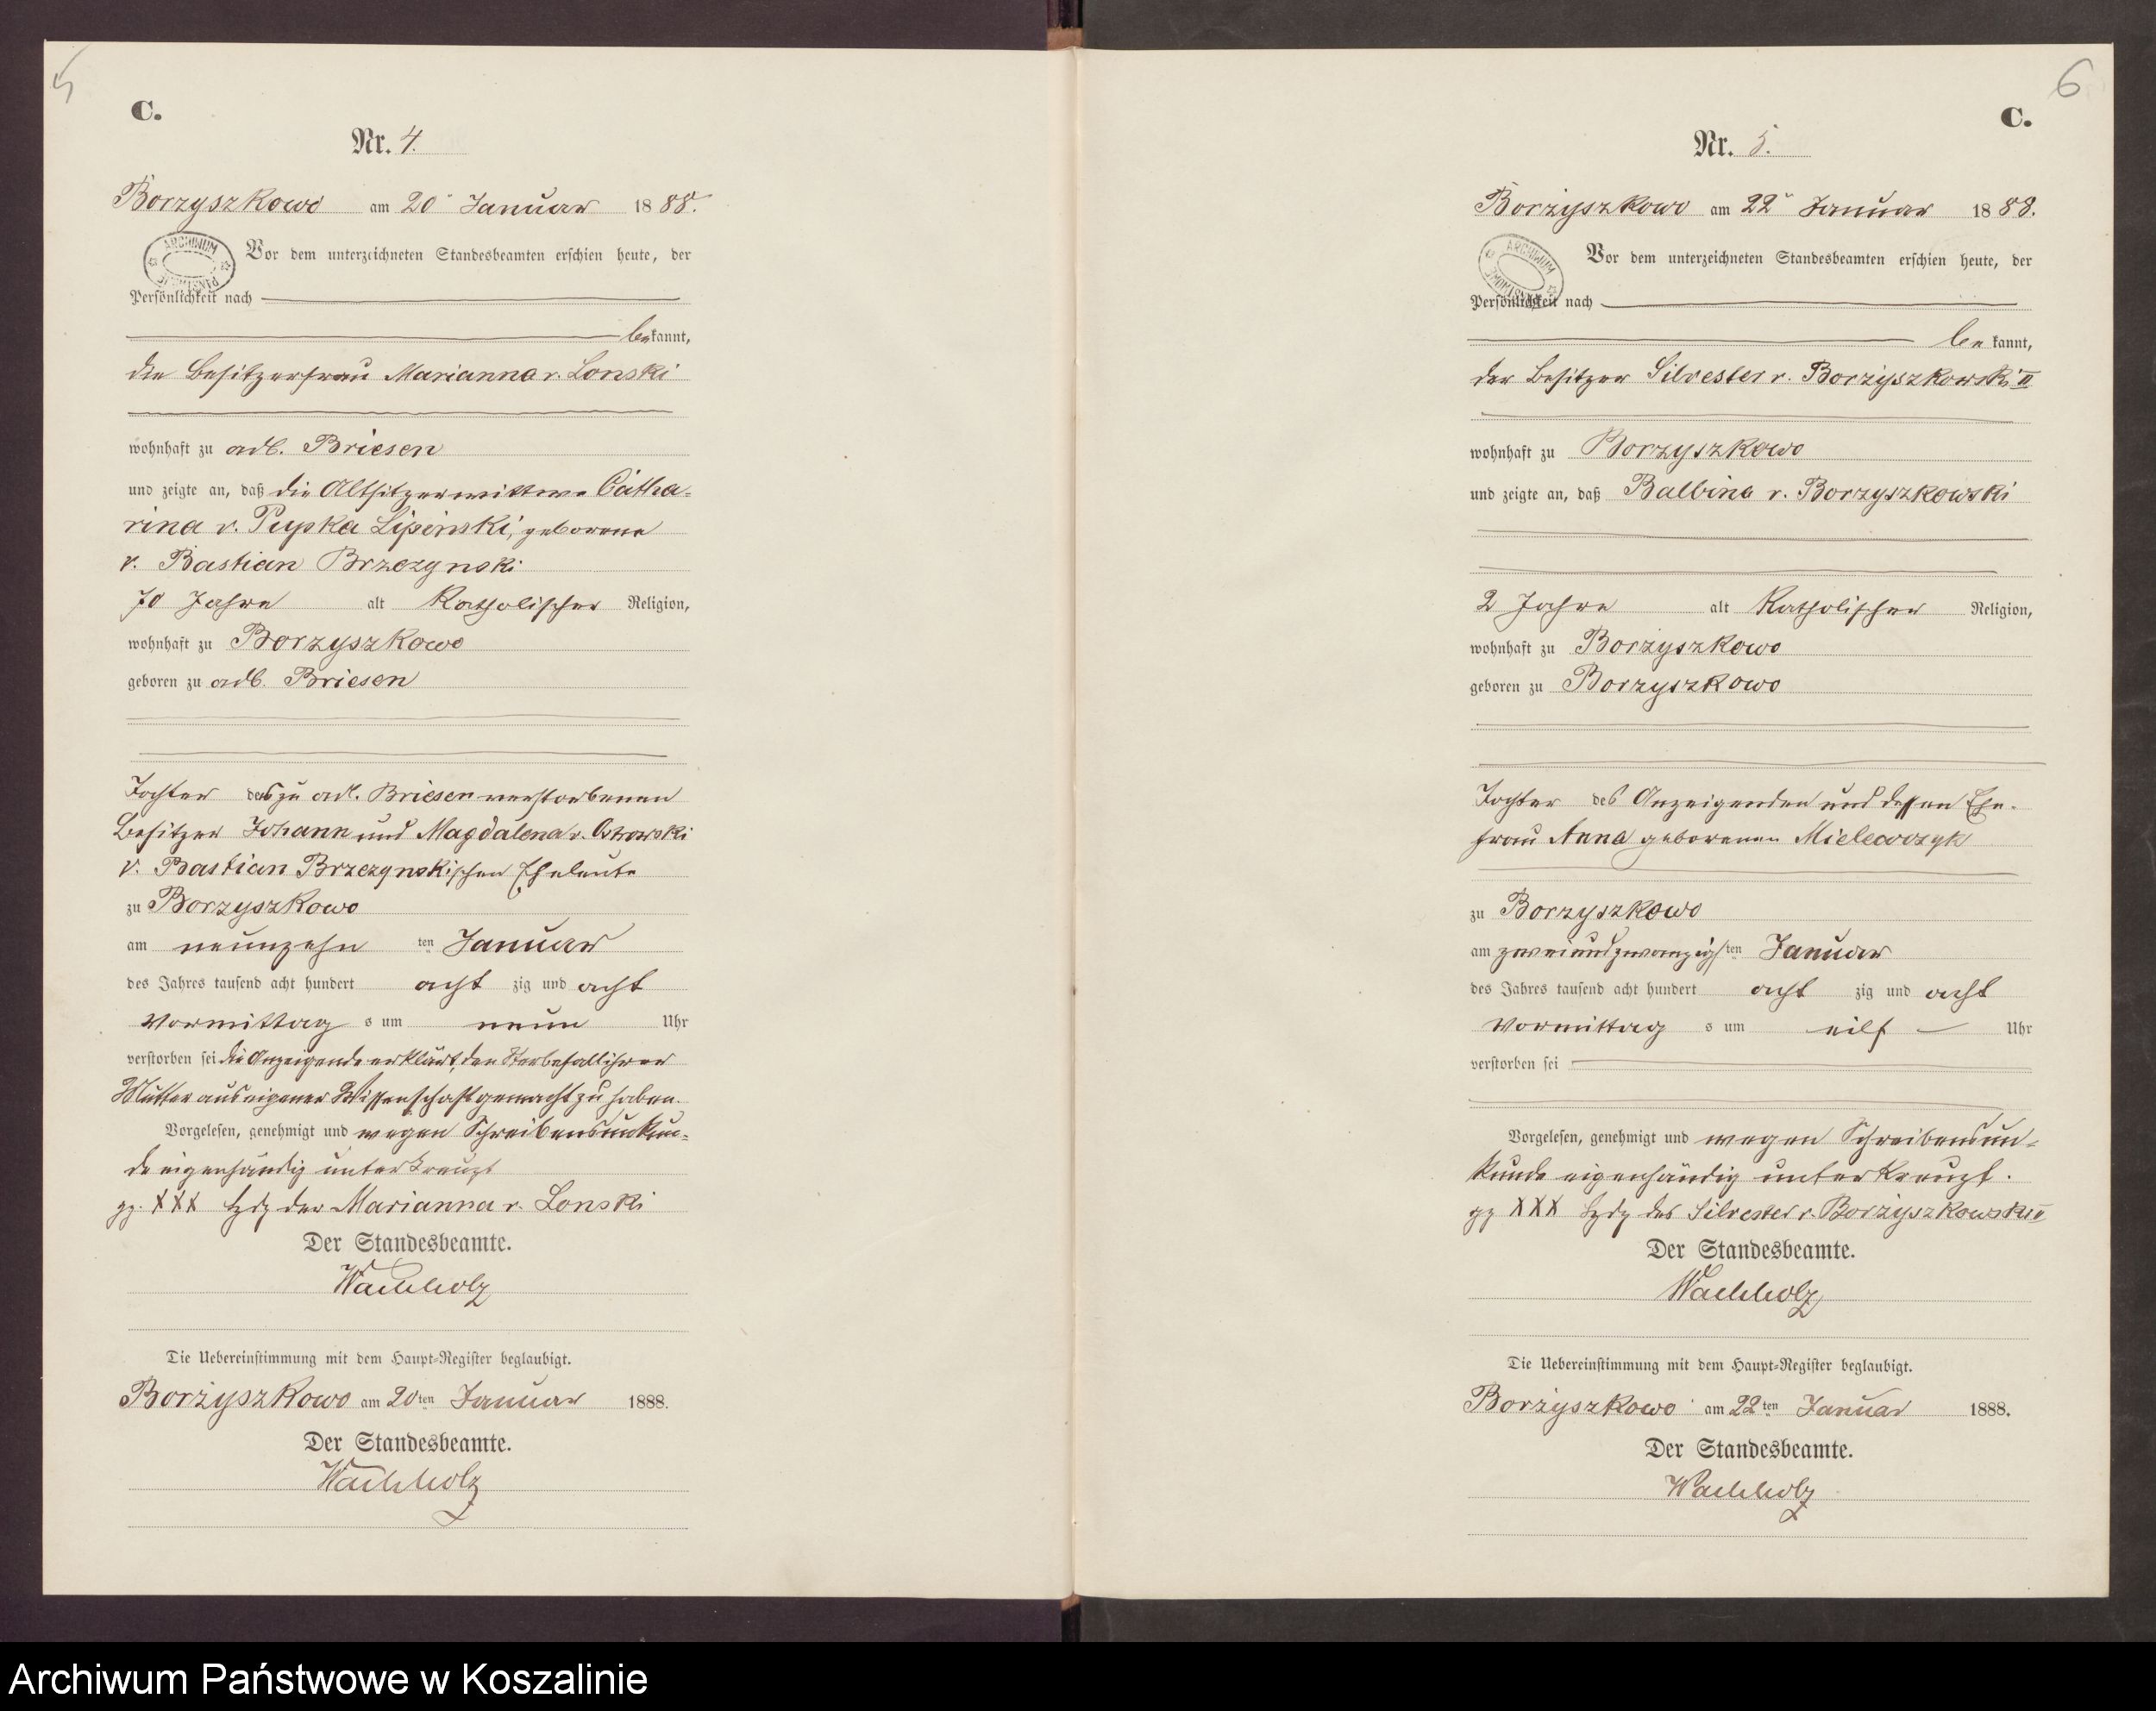 5
C.
Nr. 4.
Borzyszkowo am 20ᵗ Januar 1888.
ARCHIWUM
Vor dem unterzeichneten Standesbeamten erschien heute, der
Persönlichkeit nach
bekannt,
die Besitzerfrau Marianna v. Lonski
wohnhaft zu adl. Briesen
und zeigte an, daß die Altsitzerwittwe Catha-
rina v. Pupka Lipinski, geborene
v. Bastian Brzezynski
70 Jahre alt Katholischer Religion,
wohnhaft zu Borzyszkowo
geboren zu adl. Briesen
Tochter des zu adl. Briesen verstorbenen
Besitzer Johann und Magdalena v. Ostrowski
v. Bastian Brzezynskischen Eheleute
zu Borzyszkowo
am neunzehn ten Januar
des Jahres tausend acht hundert acht zig und acht
Vormittag s um neun Uhr
verstorben sei die Anzeigende erklärt, den Sterbefall ihrer
Mutter aus eigener Wissenschaft gemacht zu haben.
Vorgelesen, genehmigt und wegen Schreibensunkun-
de eigenhändig unterkreuzt
gz. XXX Hzdz der Marianna v. Lonski
Der Standesbeamte.
Wachholz
Die Uebereinstimmung mit dem Haupt-Register beglaubigt.
Borzyszkowo am 20ten Januar 1888.
Der Standesbeamte.
Wachholz
6
C.
Nr. 5.
Borzyszkowo am 22ᵗ Januar 1888.
ARCHIWUM
Vor dem unterzeichneten Standesbeamten erschien heute, der
Persönlichkeit nach
be kannt,
der Besitzer Silvester v. Borzyszkowski II
wohnhaft zu Borzyszkowo
und zeigte an, daß Balbina v. Borzyszkowski
2 Jahre alt Katholischer Religion,
wohnhaft zu Borzyszkowo
geboren zu Borzyszkowo
Tochter des Anzeigenden und dessen Ehe-
frau Anna geborenen Mielewczyk
zu Borzyszkowo
am zweiundzwanzigsten Januar
des Jahres tausend acht hundert acht zig und acht
Vormittag s um eilf Uhr
verstorben sei
Vorgelesen, genehmigt und wegen Schreibensun-
kunde eigenhändig unterkreuzt.
gz XXX Hzdz des Silvester v. Borzyszkowski II
Der Standesbeamte.
Wachholz
Die Uebereinstimmung mit dem Haupt-Register beglaubigt.
Borzyszkowo am 22ten Januar 1888.
Der Standesbeamte.
Wachholz
Archiwum Państwowe w Koszalinie